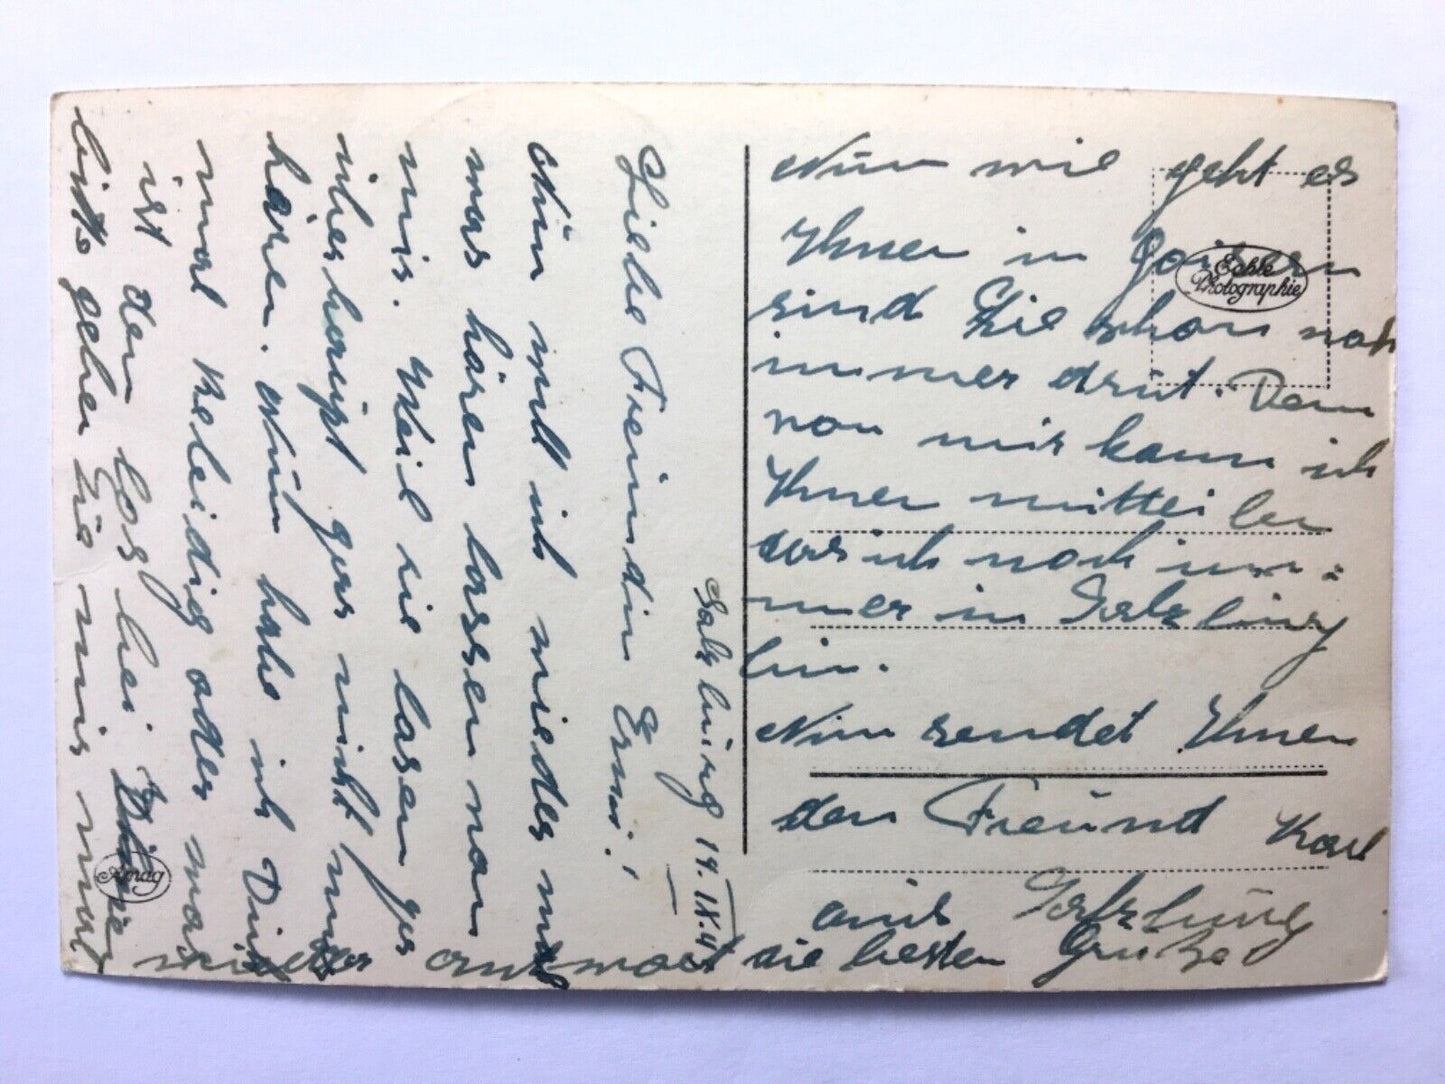 Salzburg 14. IX. 4
Liebe Freundin Erni!
Nun will ich wieder mal
was hören lassen von
mir. Weil sie lasen gar
überhaupt gar nicht mer
hören. Nun habe ich Dich
mal beleidig oder was
ist den los bei
bitte geben Sie mir mal
wieder antwort
Nun wie geht es
Ihnen in Goisern
sind Sie schon noch
immer drüt. Den
von mir kann ich
Ihnen mitteilen
das ich noch im=
mer in Salzburg
bin.
Nun sendet Ihnen
den Freund Karl
aus Salzburg
die besten Grüße
Echte
Photographie
Amag